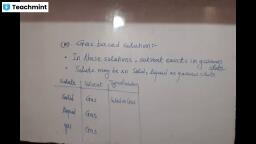 Teachmint
Gas based solution:-
• In these solutions, solvent exists in gaseous state
• Solute may be in Solid, liquid or gaseous state
Solute Solvent
Solid Gas
Liquid Gas
gas Gas